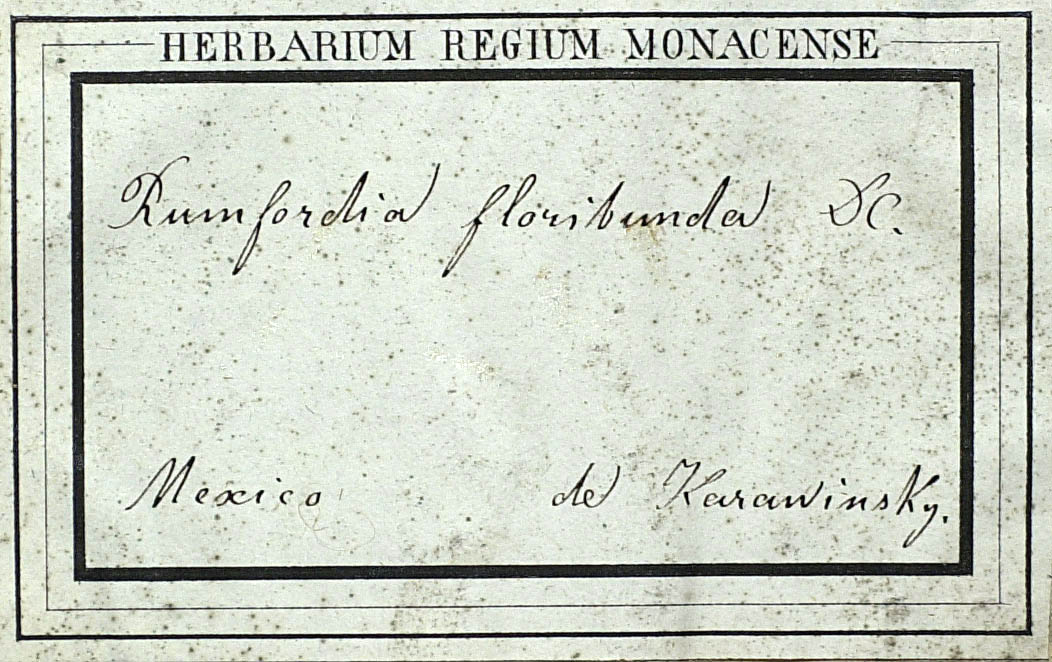 HERBARIUM REGIUM MONACENSE
Rumfordia floribunda DC.
Mexico de Karawinsky.